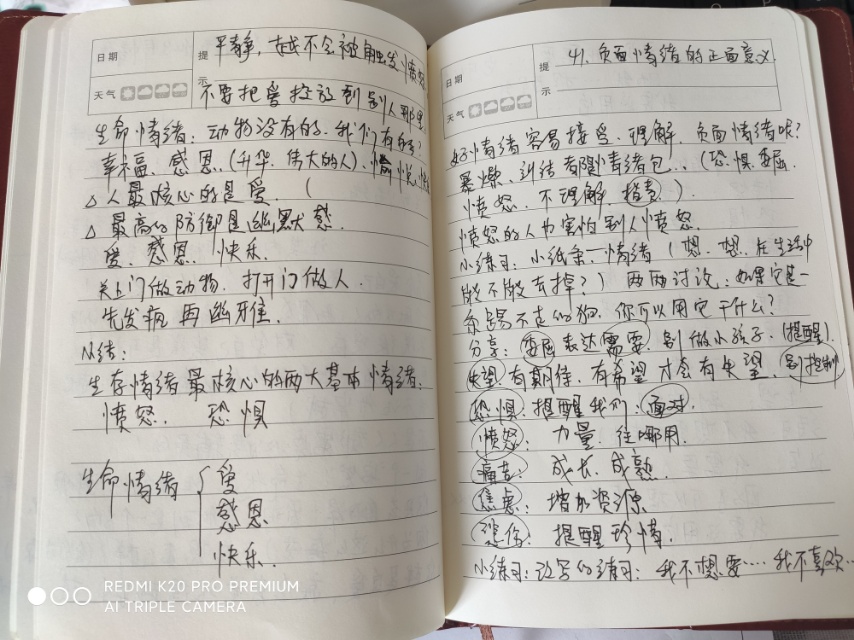 日期
提示
天气
平静,越不会被触发愤怒
不要把爱投放到别人那里
生命情绪:动物没有的,我们有的?
幸福、感恩、(升华、伟大的人)、愉悦、
△人最核心的是爱。(
△最高的防御是幽默感.
爱、感恩、快乐.
关上门做动物,打开门做人.
先发疯再幽雅.
小结:
生存情绪最核心的两大基本情绪:
愤怒. 恐惧
生命情绪
爱
感恩
快乐.
REDMI K20 PRO PREMIUM
AI TRIPLE CAMERA
日期
提示
天气
41、负面情绪的正面意义.
好情绪容易接受、理解,负面情绪呢?
暴燥、训练者随情绪包..(恐惧.委屈.
愤怒、不理解、指责.)
愤怒的人也害怕别人愤怒.
小练习:小纸条—情绪(想一想,在生活中
能不能去掉?)两两讨论:如果它是一
条踢不走的狗,你可以用它干什么?
分享:委屈表达需要.别做小孩子.(提醒).
失望.有期待,有希望才会有失望、别控制
恐惧:提醒我们:面对.
愤怒:力量.往哪用.
痛苦:成长、成熟.
焦虑:增加资源
悲伤:提醒珍惜.
小练习:改写的练习:我不想要....我不喜欢...